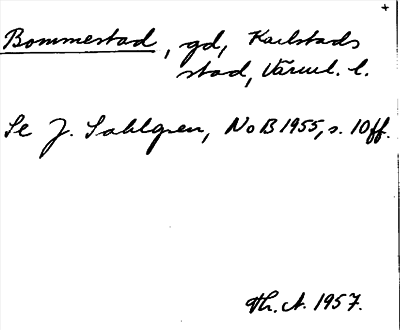 +
Bommestad, gd, Karlstads
stad, Värml. l.
Se J. Sahlgren, NoB 1955, s. 10 ff.
Th. A. 1957.